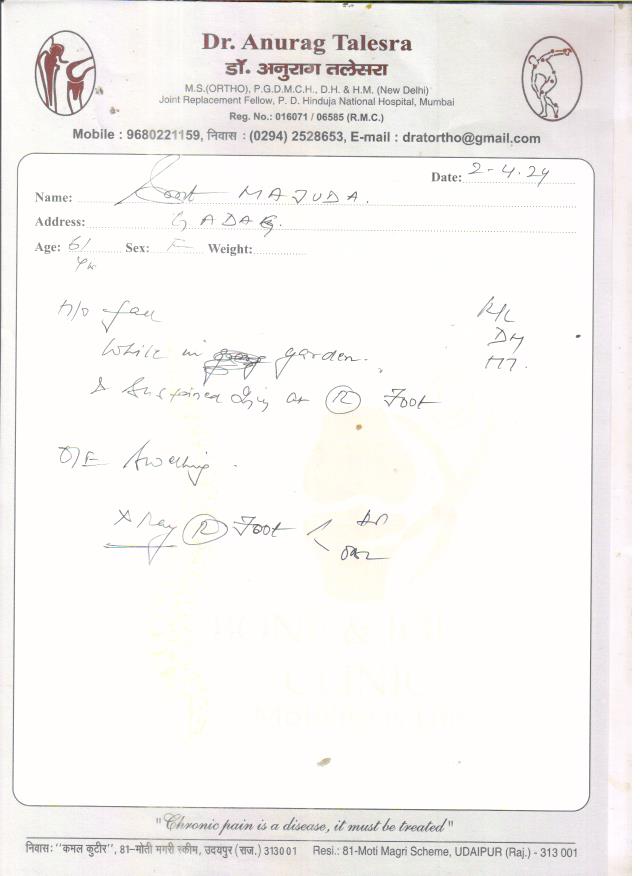 Dr. Anurag Talesra
डॉ. अनुराग तलेसरा
M.S.(ORTHO), P.G.D.M.C.H., D.H. & H.M. (New Delhi)
Joint Replacement Fellow, P. D. Hinduja National Hospital, Mumbai
Reg. No.: 016071 / 06585 (R.M.C.)
Mobile : 9680221159, निवास : (0294) 2528653, E-mail : dratortho@gmail.com
Date: 2-4.24
Name: MAJUDA.
Address:
Age: 61 Sex: F Weight:
H/o fall K/C
While in garden. DM
& Sustained Inj at R Foot HT.
O/E Swelling.
X Ray R Foot < AP
OBL
BONE & JOINT
CLINIC
"Chronic pain is a disease, it must be treated"
निवास: "कमल कुटीर", 81-मोती मगरी स्कीम, उदयपुर (राज.) 313001 Resi.: 81-Moti Magri Scheme, UDAIPUR (Raj.) - 313 001